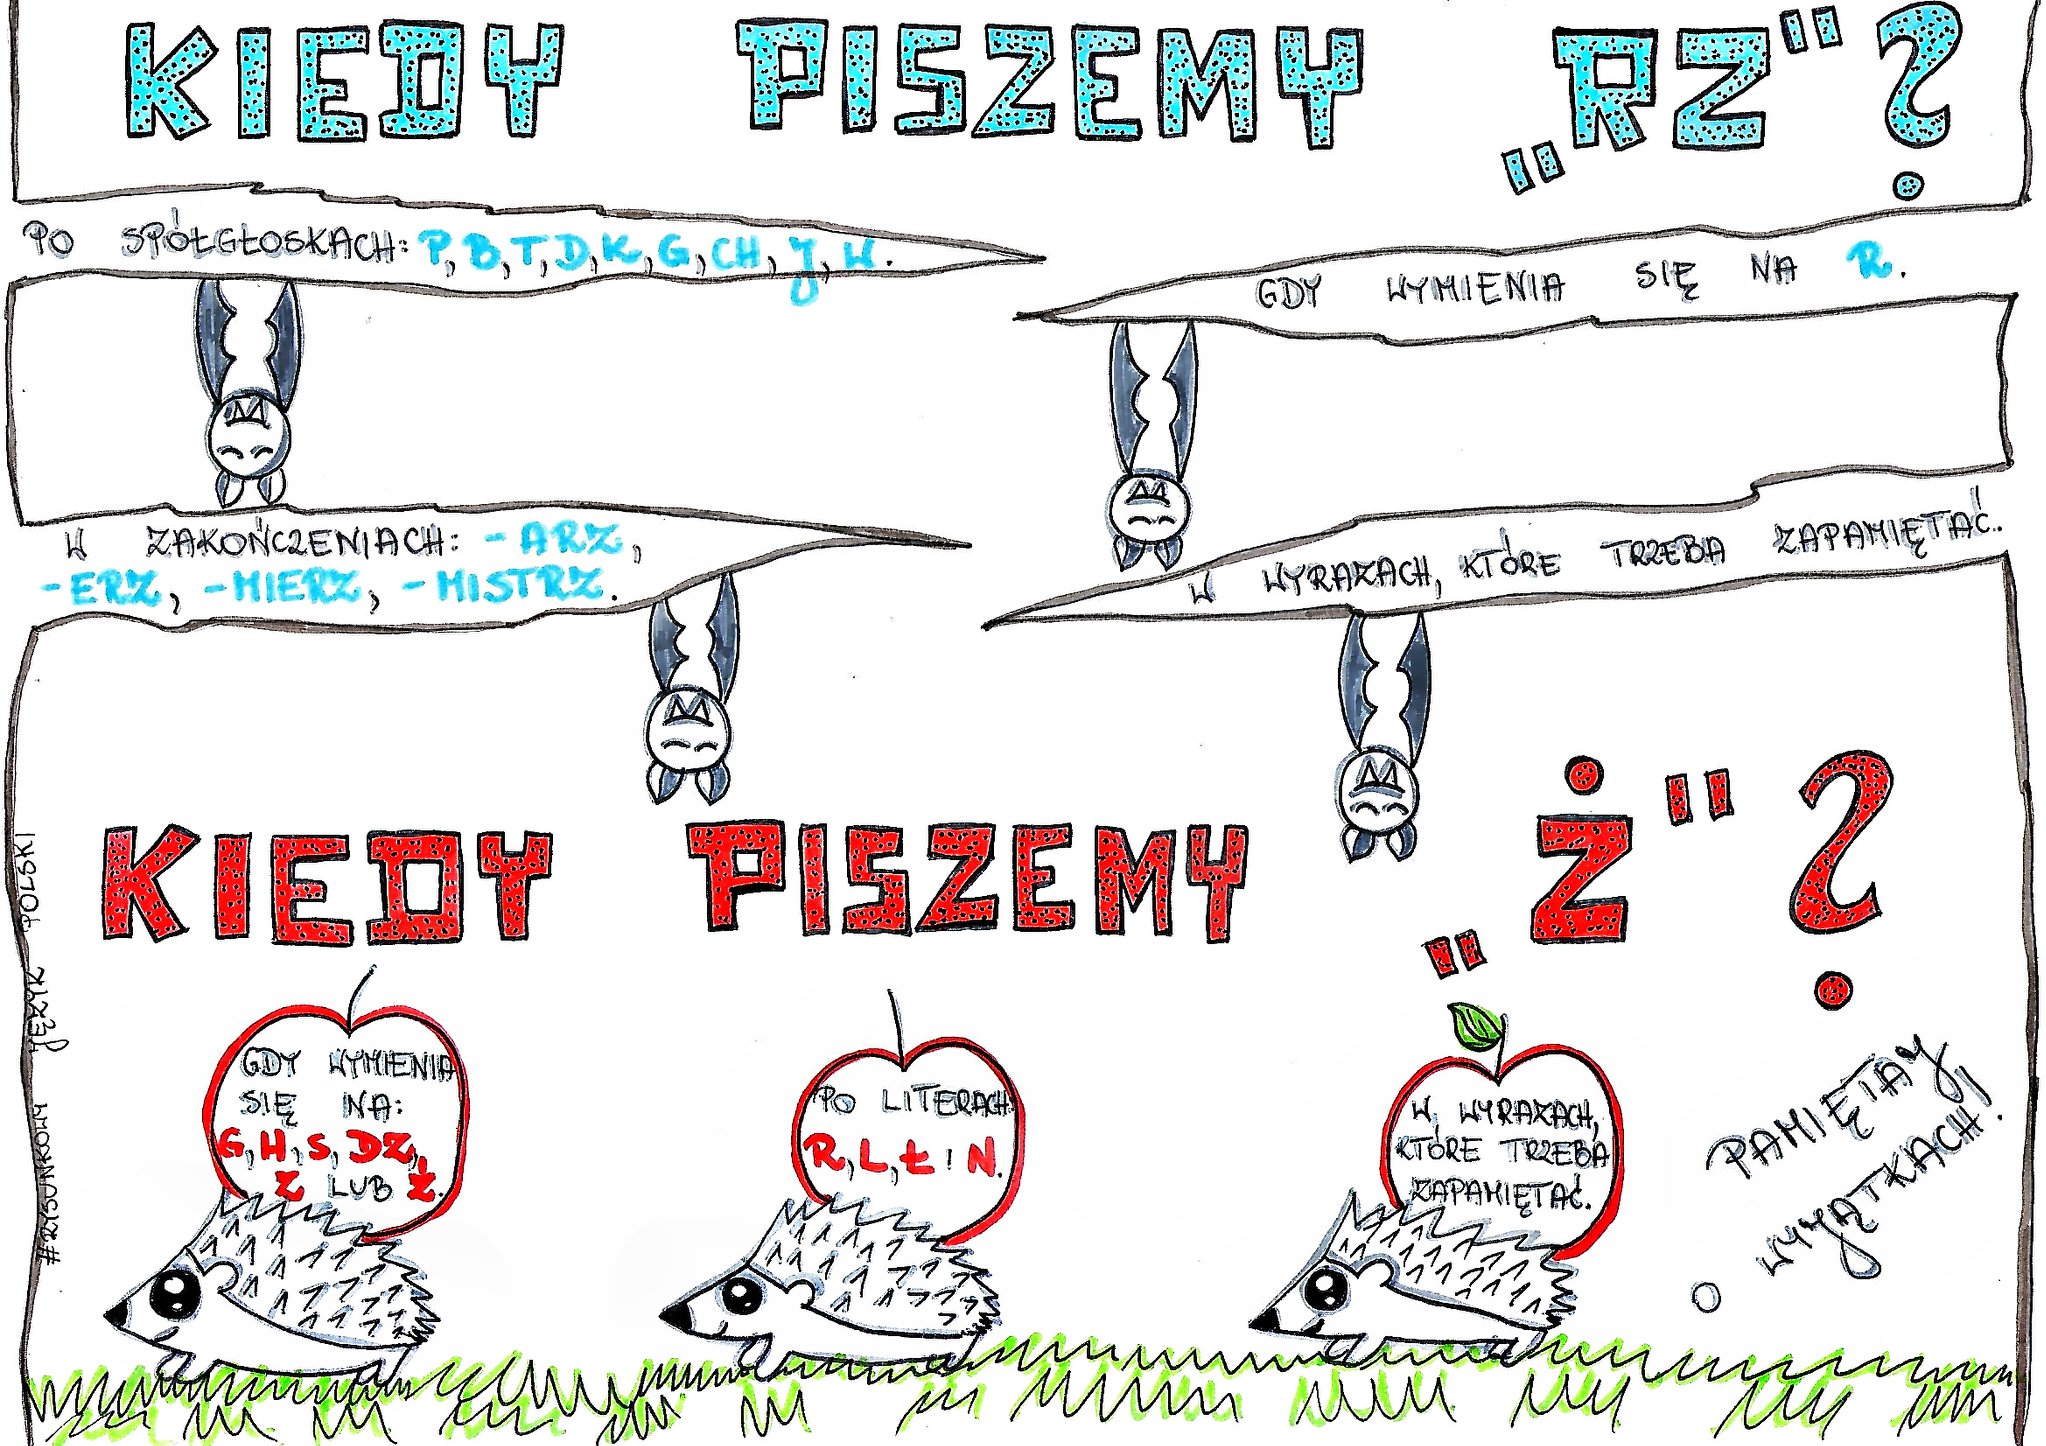 KIEDY PISZEMY „RZ"?
PO SPÓŁGŁOSKACH: P, B, T, D, K, G, CH, J, W.
GDY WYMIENIA SIĘ NA R.
W ZAKOŃCZENIACH: -ARZ,
-ERZ, -MIERZ, -MISTRZ.
W WYRAZACH, KTÓRE TRZEBA ZAPAMIĘTAĆ.
KIEDY PISZEMY „Ż"?
GDY WYMIENIA
SIĘ NA:
G, H, S, DZ,
Z LUB Ź.
PO LITERACH
R, L, Ł I N.
W WYRAZACH,
KTÓRE TRZEBA
ZAPAMIĘTAĆ.
PAMIĘTAJ
O WYJĄTKACH!
#ZRYSUNKOWY JĘZYK POLSKI